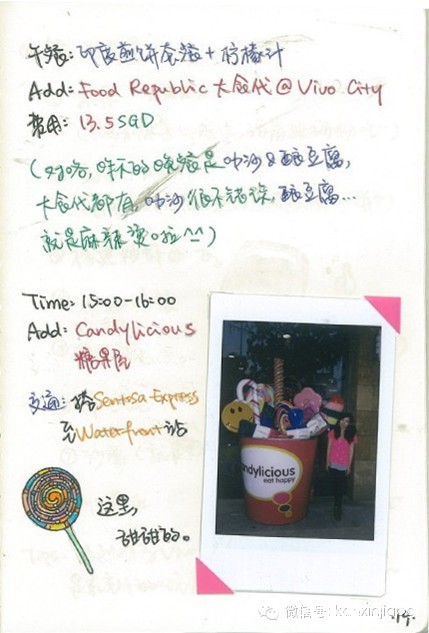 午餐: 印度煎饼套餐 + 柠檬汁
Add: Food Republic 大食代 @ Vivo City
费用: 13.5SGD
(对咯, 昨天的晚餐是叻沙&酿豆腐,
大食代都有, 叻沙很不错哦, 酿豆腐...
就是麻辣烫啦^^)
Time: 15:00-16:00
Add: Candylicious
糖果店
交通: 搭Sentosa Express
至Waterfront站
这里,
甜甜的。
andylicious
eat happy
微信号:
·14·